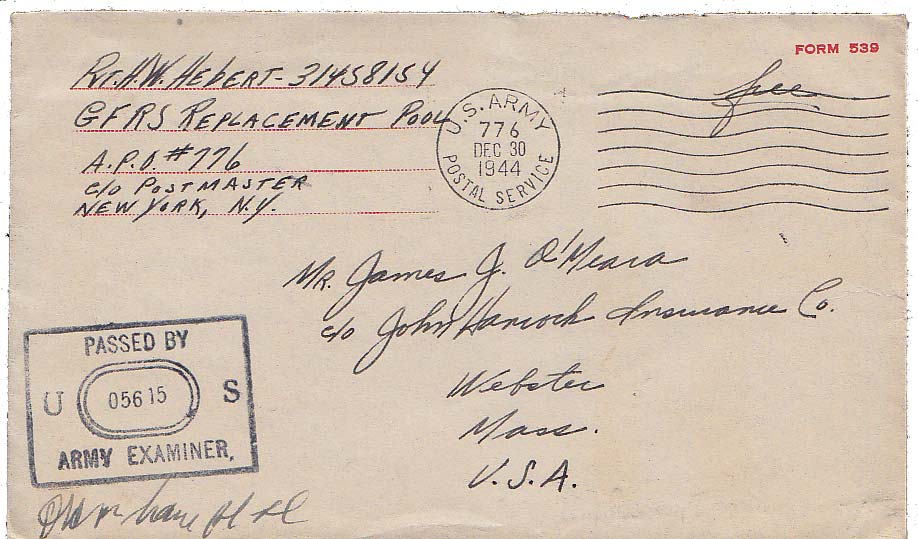 FORM 539
Pvt. H.W. Hebert - 31458154
GFRS Replacement Pool
A.P.O. #776
c/o Postmaster
New York, N.Y.
U.S. ARMY
776
DEC 30
1944
POSTAL SERVICE
free
Mr. James J. O'Meara
c/o John Hancock Insurance Co.
Webster
Mass.
U.S.A.
PASSED BY
U 05615 S
ARMY EXAMINER.